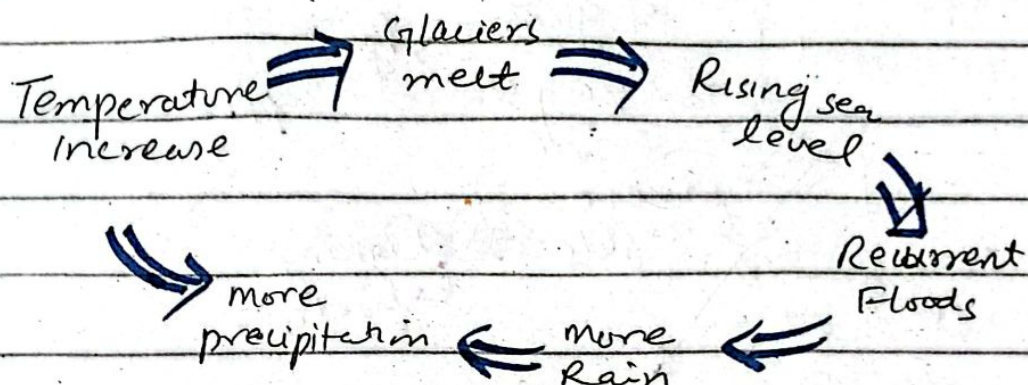 Temperature
increase
Glaciers
melt
Rising sea
level
Recurrent
Floods
more
Rain
more
precipitation